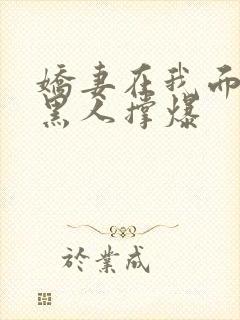 嬌妻在我面
黑人撐爆
於業成